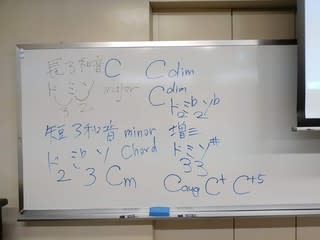 長3和音 C
ド ミ ソ major
3 2
短3和音 minor
ド ミb ソ Chord
2 3 Cm
Cdim
Cdim
ド ミb ソb
2 2
増三
ド ミ ソ#
3 3
Caug C+ C+5